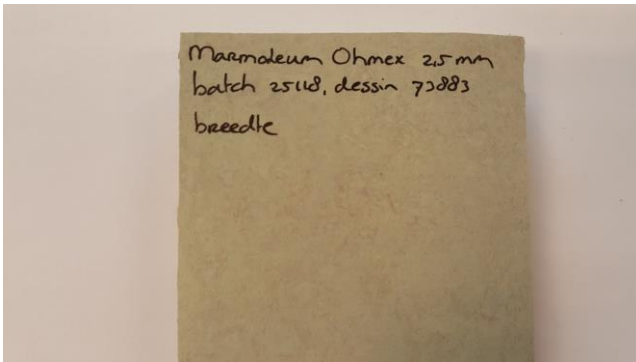 Marmoleum Ohmex 2,5 mm
batch 25118, dessin 73883
breedte